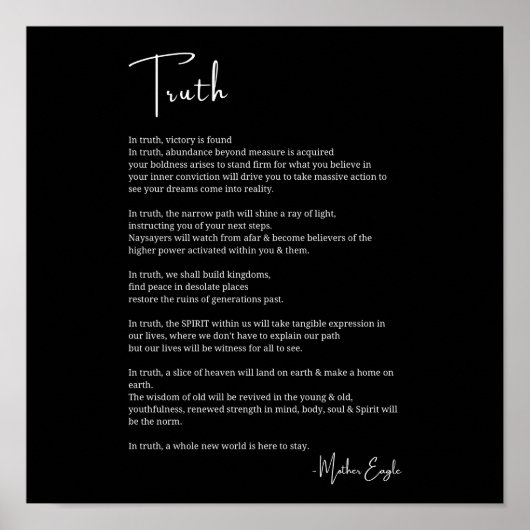 Truth
In truth, victory is found
In truth, abundance beyond measure is acquired
your boldness arises to stand firm for what you believe in
your inner conviction will drive you to take massive action to
see your dreams come into reality.
In truth, the narrow path will shine a ray of light,
instructing you of your next steps.
Naysayers will watch from afar & become believers of the
higher power activated within you & them.
In truth, we shall build kingdoms,
find peace in desolate places
restore the ruins of generations past.
In truth, the SPIRIT within us will take tangible expression in
our lives, where we don't have to explain our path
but our lives will be witness for all to see.
In truth, a slice of heaven will land on earth & make a home on
earth.
The wisdom of old will be revived in the young & old,
youthfulness, renewed strength in mind, body, soul & Spirit will
be the norm.
In truth, a whole new world is here to stay.
-Mother Eagle